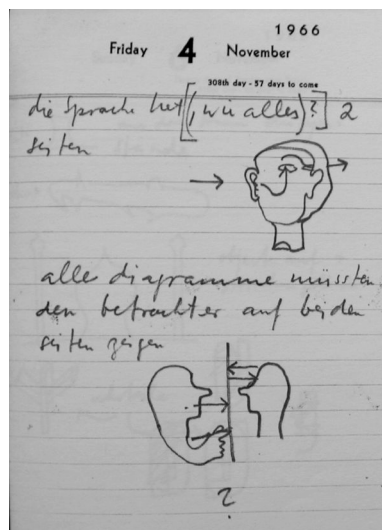 1966
Friday 4 November
308th day - 57 days to come
die Sprache hat [(, wie alles)?] 2
seiten
alle diagramme müssten
den betrachter auf beiden
seiten zeigen
?